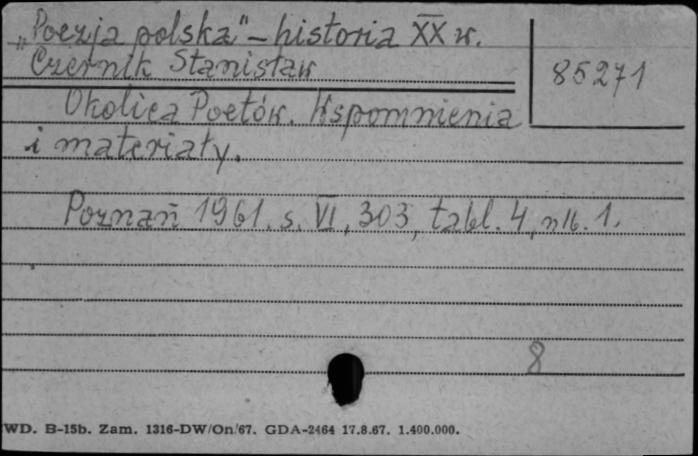 „Poezja polska" – historia XX w.
Czernik Stanisław
85271
Okolica Poetów. Wspomnienia
i materiały.
Poznań 1961. s. VI, 303, tabl. 4, nlb. 1.
8
WD. B-15b. Zam. 1316-DW/On/67. GDA-2464 17.8.67. 1.400.000.